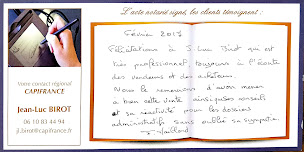 L'acte notarié signé, les clients témoignent :
Février 2017
Félicitations à J. Luc Birot qui est
très professionnel toujours à l'écoute
des vendeurs et des acheteurs.
Nous le remercions d'avoir mener
à bien cette vente ainsi que ses conseils
et sa réactivité pour les dossiers
administratifs sans oublier sa sympathie
Votre contact régional
CAPIFRANCE
Jean-Luc BIROT
06 10 83 44 94
jl.birot@capifrance.fr